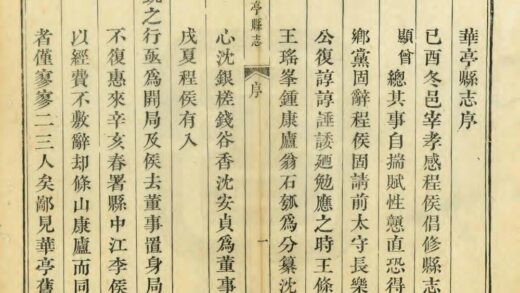 華亭縣志序
己酉冬邑宰孝感程侯倡修縣志
顯曾總其事自揣賦性戇直恐得
鄉黨固辭程侯固請前太守長樂
公復諄諄諈諉廼勉應之時王條
王瑤峯鍾康廬翁石瓠爲分纂沈
亭縣志
序
一
心沈銀槎錢谷香沈安貞爲董事
戌夏程侯有入
之行亟爲開局及侯去董事置身局
不復惠來辛亥春署縣中江李侯
以經費不敷辭却條山康廬而同
者僅寥寥二三人矣鄙見華亭舊